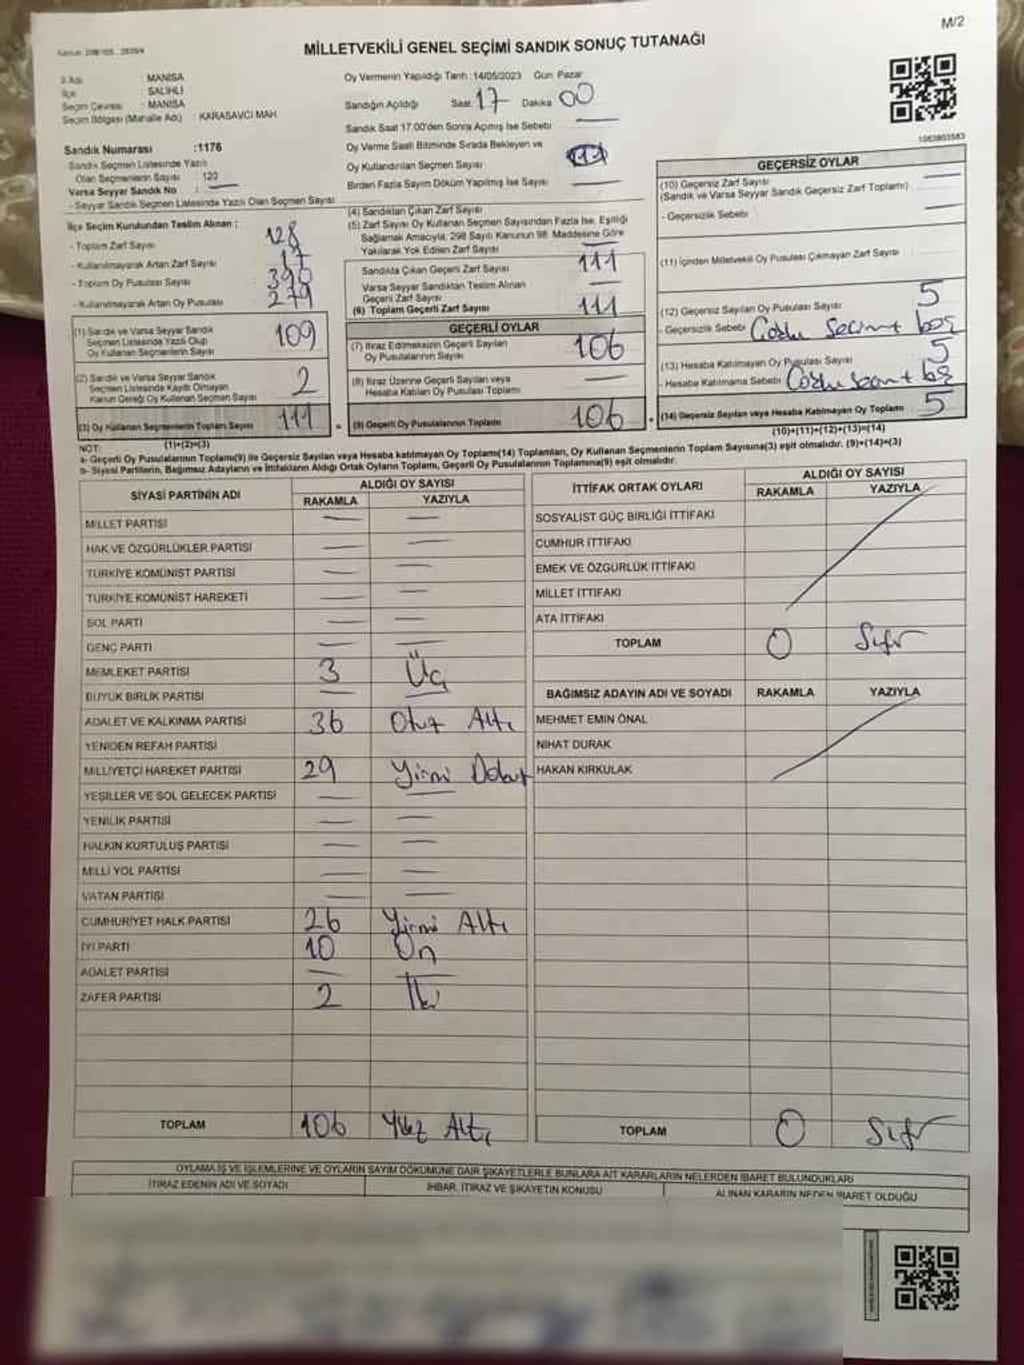 M/2
MİLLETVEKİLİ GENEL SEÇİMİ SANDIK SONUÇ TUTANAĞI
İl Adı : MANİSA
İlçe : SALİHLİ
Seçim Çevresi : MANİSA
Seçim Bölgesi (Mahalle Adı) : KARASAVCI MAH.
Oy Vermenin Yapıldığı Tarih :14/05/2023 Gün: Pazar
Sandığın Açıldığı Saat: 17 Dakika 00
Sandık Saat 17.00'den Sonra Açılmış İse Sebebi
Oy Verme Saati Bitiminde Sırada Bekleyen ve
Oy Kullandırılan Seçmen Sayısı
Birden Fazla Sayım Döküm Yapılmış İse Sayısı
1083803583
Sandık Numarası :1176
Sandık Seçmen Listesinde Yazılı
Olan Seçmenlerin Sayısı 120
Varsa Seyyar Sandık No :
- Seyyar Sandık Seçmen Listesinde Yazılı Olan Seçmen Sayısı
İlçe Seçim Kurulundan Teslim Alınan ;
- Toplam Zarf Sayısı 128
- Kullanılmayarak Artan Zarf Sayısı 17
- Toplam Oy Pusulası Sayısı 390
- Kullanılmayarak Artan Oy Pusulası 279
(1) Sandık ve Varsa Seyyar Sandık
Seçmen Listesinde Yazılı Olup
Oy Kullanan Seçmenlerin Sayısı 109
(2) Sandık ve Varsa Seyyar Sandık
Seçmen Listesinde Kaydı Olmayan
Kanun Gereği Oy Kullanan Seçmen Sayısı 2
(3) Oy Kullanan Seçmenlerin Toplam Sayısı 111
(1)+(2)=(3)
(4) Sandıktan Çıkan Zarf Sayısı
(5) Zarf Sayısı Oy Kullanan Seçmen Sayısından Fazla İse, Eşitliği
Sağlamak Amacıyla, 298 Sayılı Kanunun 98. Maddesine Göre
Yakılarak Yok Edilen Zarf Sayısı
Sandıkta Çıkan Geçerli Zarf Sayısı 111
Varsa Seyyar Sandıktan Teslim Alınan
Geçerli Zarf Sayısı
(6) Toplam Geçerli Zarf Sayısı 111
GEÇERLİ OYLAR
(7) İtiraz Edilmeksizin Geçerli Sayılan
Oy Pusulalarının Sayısı 106
(8) İtiraz Üzerine Geçerli Sayılan veya
Hesaba Katılan Oy Pusulası Toplamı
(9) Geçerli Oy Pusulalarının Toplamı 106
GEÇERSİZ OYLAR
(10) Geçersiz Zarf Sayısı
(Sandık ve Varsa Seyyar Sandık Geçersiz Zarf Toplamı)
- Geçersizlik Sebebi
(11) İçinden Milletvekili Oy Pusulası Çıkmayan Zarf Sayısı
(12) Geçersiz Sayılan Oy Pusulası Sayısı 5
- Geçersizlik Sebebi Çoklu Seçim + boş
(13) Hesaba Katılmayan Oy Pusulası Sayısı 5
- Hesaba Katılmama Sebebi Çoklu Seçim + boş
(14) Geçersiz Sayılan veya Hesaba Katılmayan Oy Toplamı 5
(10)+(11)+(12)+(13)=(14)
NOT:
a- Geçerli Oy Pusulalarının Toplamı(9) ile Geçersiz Sayılan veya Hesaba katılmayan Oy Toplamı(14) Toplamları, Oy Kullanan Seçmenlerin Toplam Sayısına(3) eşit olmalıdır. (9)+(14)=(3)
b- Siyasi Partilerin, Bağımsız Adayların ve İttifakların Aldığı Ortak Oyların Toplamı, Geçerli Oy Pusulalarının Toplamına(9) eşit olmalıdır.
SİYASİ PARTİNİN ADI ALDIĞI OY SAYISI
RAKAMLA YAZIYLA
MİLLET PARTİSİ
HAK VE ÖZGÜRLÜKLER PARTİSİ
TÜRKİYE KOMÜNİST PARTİSİ
TÜRKİYE KOMÜNİST HAREKETİ
SOL PARTİ
GENÇ PARTİ
MEMLEKET PARTİSİ 3 Üç
BÜYÜK BİRLİK PARTİSİ
ADALET VE KALKINMA PARTİSİ 36 Otuz Altı
YENİDEN REFAH PARTİSİ
MİLLİYETÇİ HAREKET PARTİSİ 29 Yirmi Dokuz
YEŞİLLER VE SOL GELECEK PARTİSİ
YENİLİK PARTİSİ
HALKIN KURTULUŞ PARTİSİ
MİLLİ YOL PARTİSİ
VATAN PARTİSİ
CUMHURİYET HALK PARTİSİ 26 Yirmi Altı
İYİ PARTİ 10 On
ADALET PARTİSİ
ZAFER PARTİSİ 2 İki
TOPLAM 106 Yüz Altı
İTTİFAK ORTAK OYLARI ALDIĞI OY SAYISI
RAKAMLA YAZIYLA
SOSYALİST GÜÇ BİRLİĞİ İTTİFAKI
CUMHUR İTTİFAKI
EMEK VE ÖZGÜRLÜK İTTİFAKI
MİLLET İTTİFAKI
ATA İTTİFAKI
TOPLAM 0 Sıfır
BAĞIMSIZ ADAYIN ADI VE SOYADI RAKAMLA YAZIYLA
MEHMET EMİN ÖNAL
NİHAT DURAK
HAKAN KIRKULAK
TOPLAM 0 Sıfır
OYLAMA İŞ VE İŞLEMLERİNE VE OYLARIN SAYIM DÖKÜMÜNE DAİR ŞİKAYETLERLE BUNLARA AİT KARARLARIN NELERDEN İBARET BULUNDUKLARI
İTİRAZ EDENİN ADI VE SOYADI İHBAR, İTİRAZ VE ŞİKAYETİN KONUSU ALINAN KARARIN NEDEN İBARET OLDUĞU